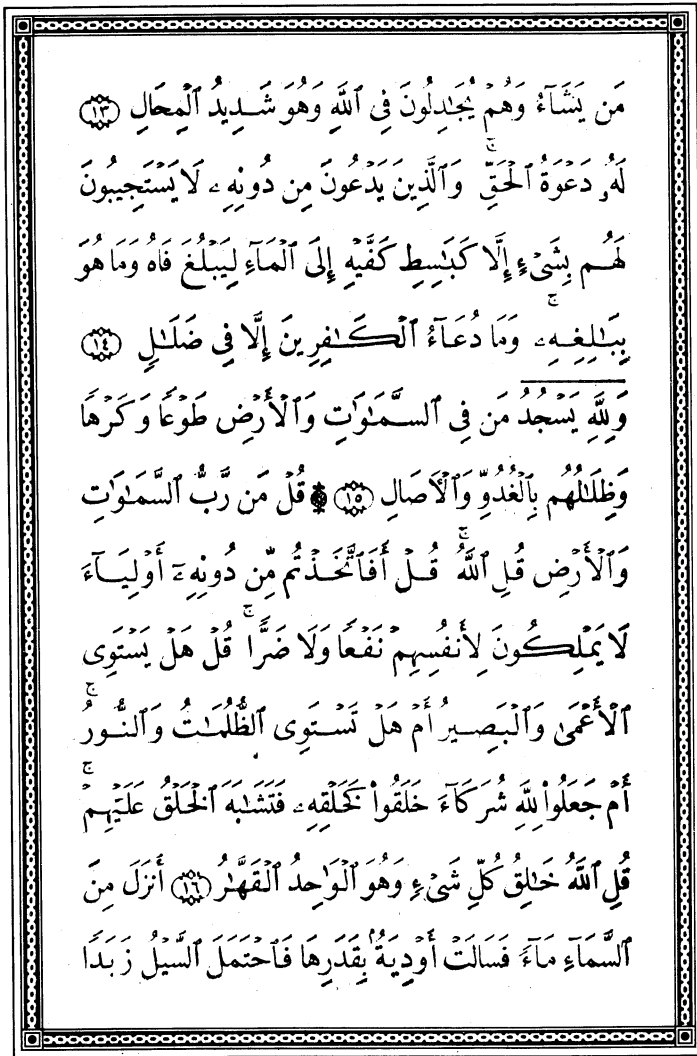 مَن يَشَآءُ وَهُمْ يُجَٰدِلُونَ فِى ٱللَّهِ وَهُوَ شَدِيدُ ٱلْمِحَالِ ﴿١٣﴾
لَهُۥ دَعْوَةُ ٱلْحَقِّ ۚ وَٱلَّذِينَ يَدْعُونَ مِن دُونِهِۦ لَا يَسْتَجِيبُونَ
لَهُم بِشَىْءٍ إِلَّا كَبَٰسِطِ كَفَّيْهِ إِلَى ٱلْمَآءِ لِيَبْلُغَ فَاهُ وَمَا هُوَ
بِبَٰلِغِهِۦ ۚ وَمَا دُعَآءُ ٱلْكَٰفِرِينَ إِلَّا فِى ضَلَٰلٍ ﴿١٤﴾
وَلِلَّهِ يَسْجُدُ مَن فِى ٱلسَّمَٰوَٰتِ وَٱلْأَرْضِ طَوْعًا وَكَرْهًا
وَظِلَٰلُهُم بِٱلْغُدُوِّ وَٱلْءَاصَالِ ﴿١٥﴾ ۞ قُلْ مَن رَّبُّ ٱلسَّمَٰوَٰتِ
وَٱلْأَرْضِ قُلِ ٱللَّهُ ۚ قُلْ أَفَٱتَّخَذْتُم مِّن دُونِهِۦٓ أَوْلِيَآءَ
لَا يَمْلِكُونَ لِأَنفُسِهِمْ نَفْعًا وَلَا ضَرًّا ۚ قُلْ هَلْ يَسْتَوِى
ٱلْأَعْمَىٰ وَٱلْبَصِيرُ أَمْ هَلْ تَسْتَوِى ٱلظُّلُمَٰتُ وَٱلنُّورُ ۚ
أَمْ جَعَلُوا۟ لِلَّهِ شُرَكَآءَ خَلَقُوا۟ كَخَلْقِهِۦ فَتَشَٰبَهَ ٱلْخَلْقُ عَلَيْهِمْ ۚ
قُلِ ٱللَّهُ خَٰلِقُ كُلِّ شَىْءٍ وَهُوَ ٱلْوَٰحِدُ ٱلْقَهَّٰرُ ﴿١٦﴾ أَنزَلَ مِنَ
ٱلسَّمَآءِ مَآءً فَسَالَتْ أَوْدِيَةٌۢ بِقَدَرِهَا فَٱحْتَمَلَ ٱلسَّيْلُ زَبَدًا